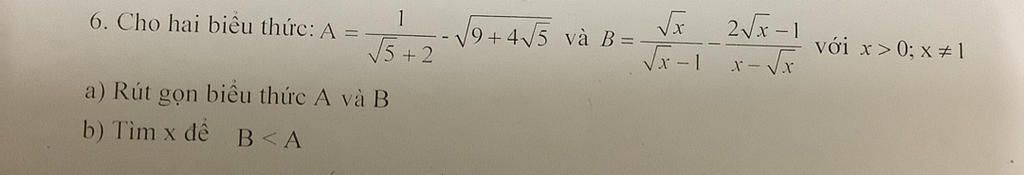 6. Cho hai biểu thức: A = \frac{1}{\sqrt{5}+2} - \sqrt{9+4\sqrt{5}} và B = \frac{\sqrt{x}}{\sqrt{x}-1} - \frac{2\sqrt{x}-1}{x-\sqrt{x}} với x > 0; x ≠ 1
a) Rút gọn biểu thức A và B
b) Tìm x để B < A